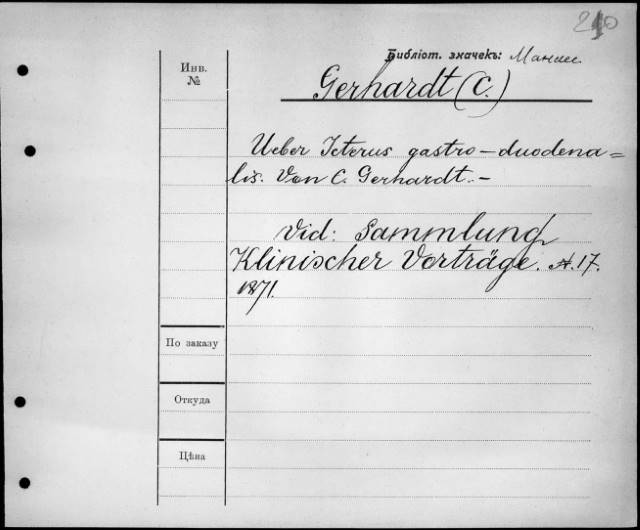 Библіот. значекъ:
Инв.
№
Gerhardt (C.)
Ueber Icterus gastro-duodena=
lis. Von C. Gerhardt.-
Vid: Sammlung
Klinischer Vorträge. № 17.
1871.
По заказу
Откуда
Цѣна